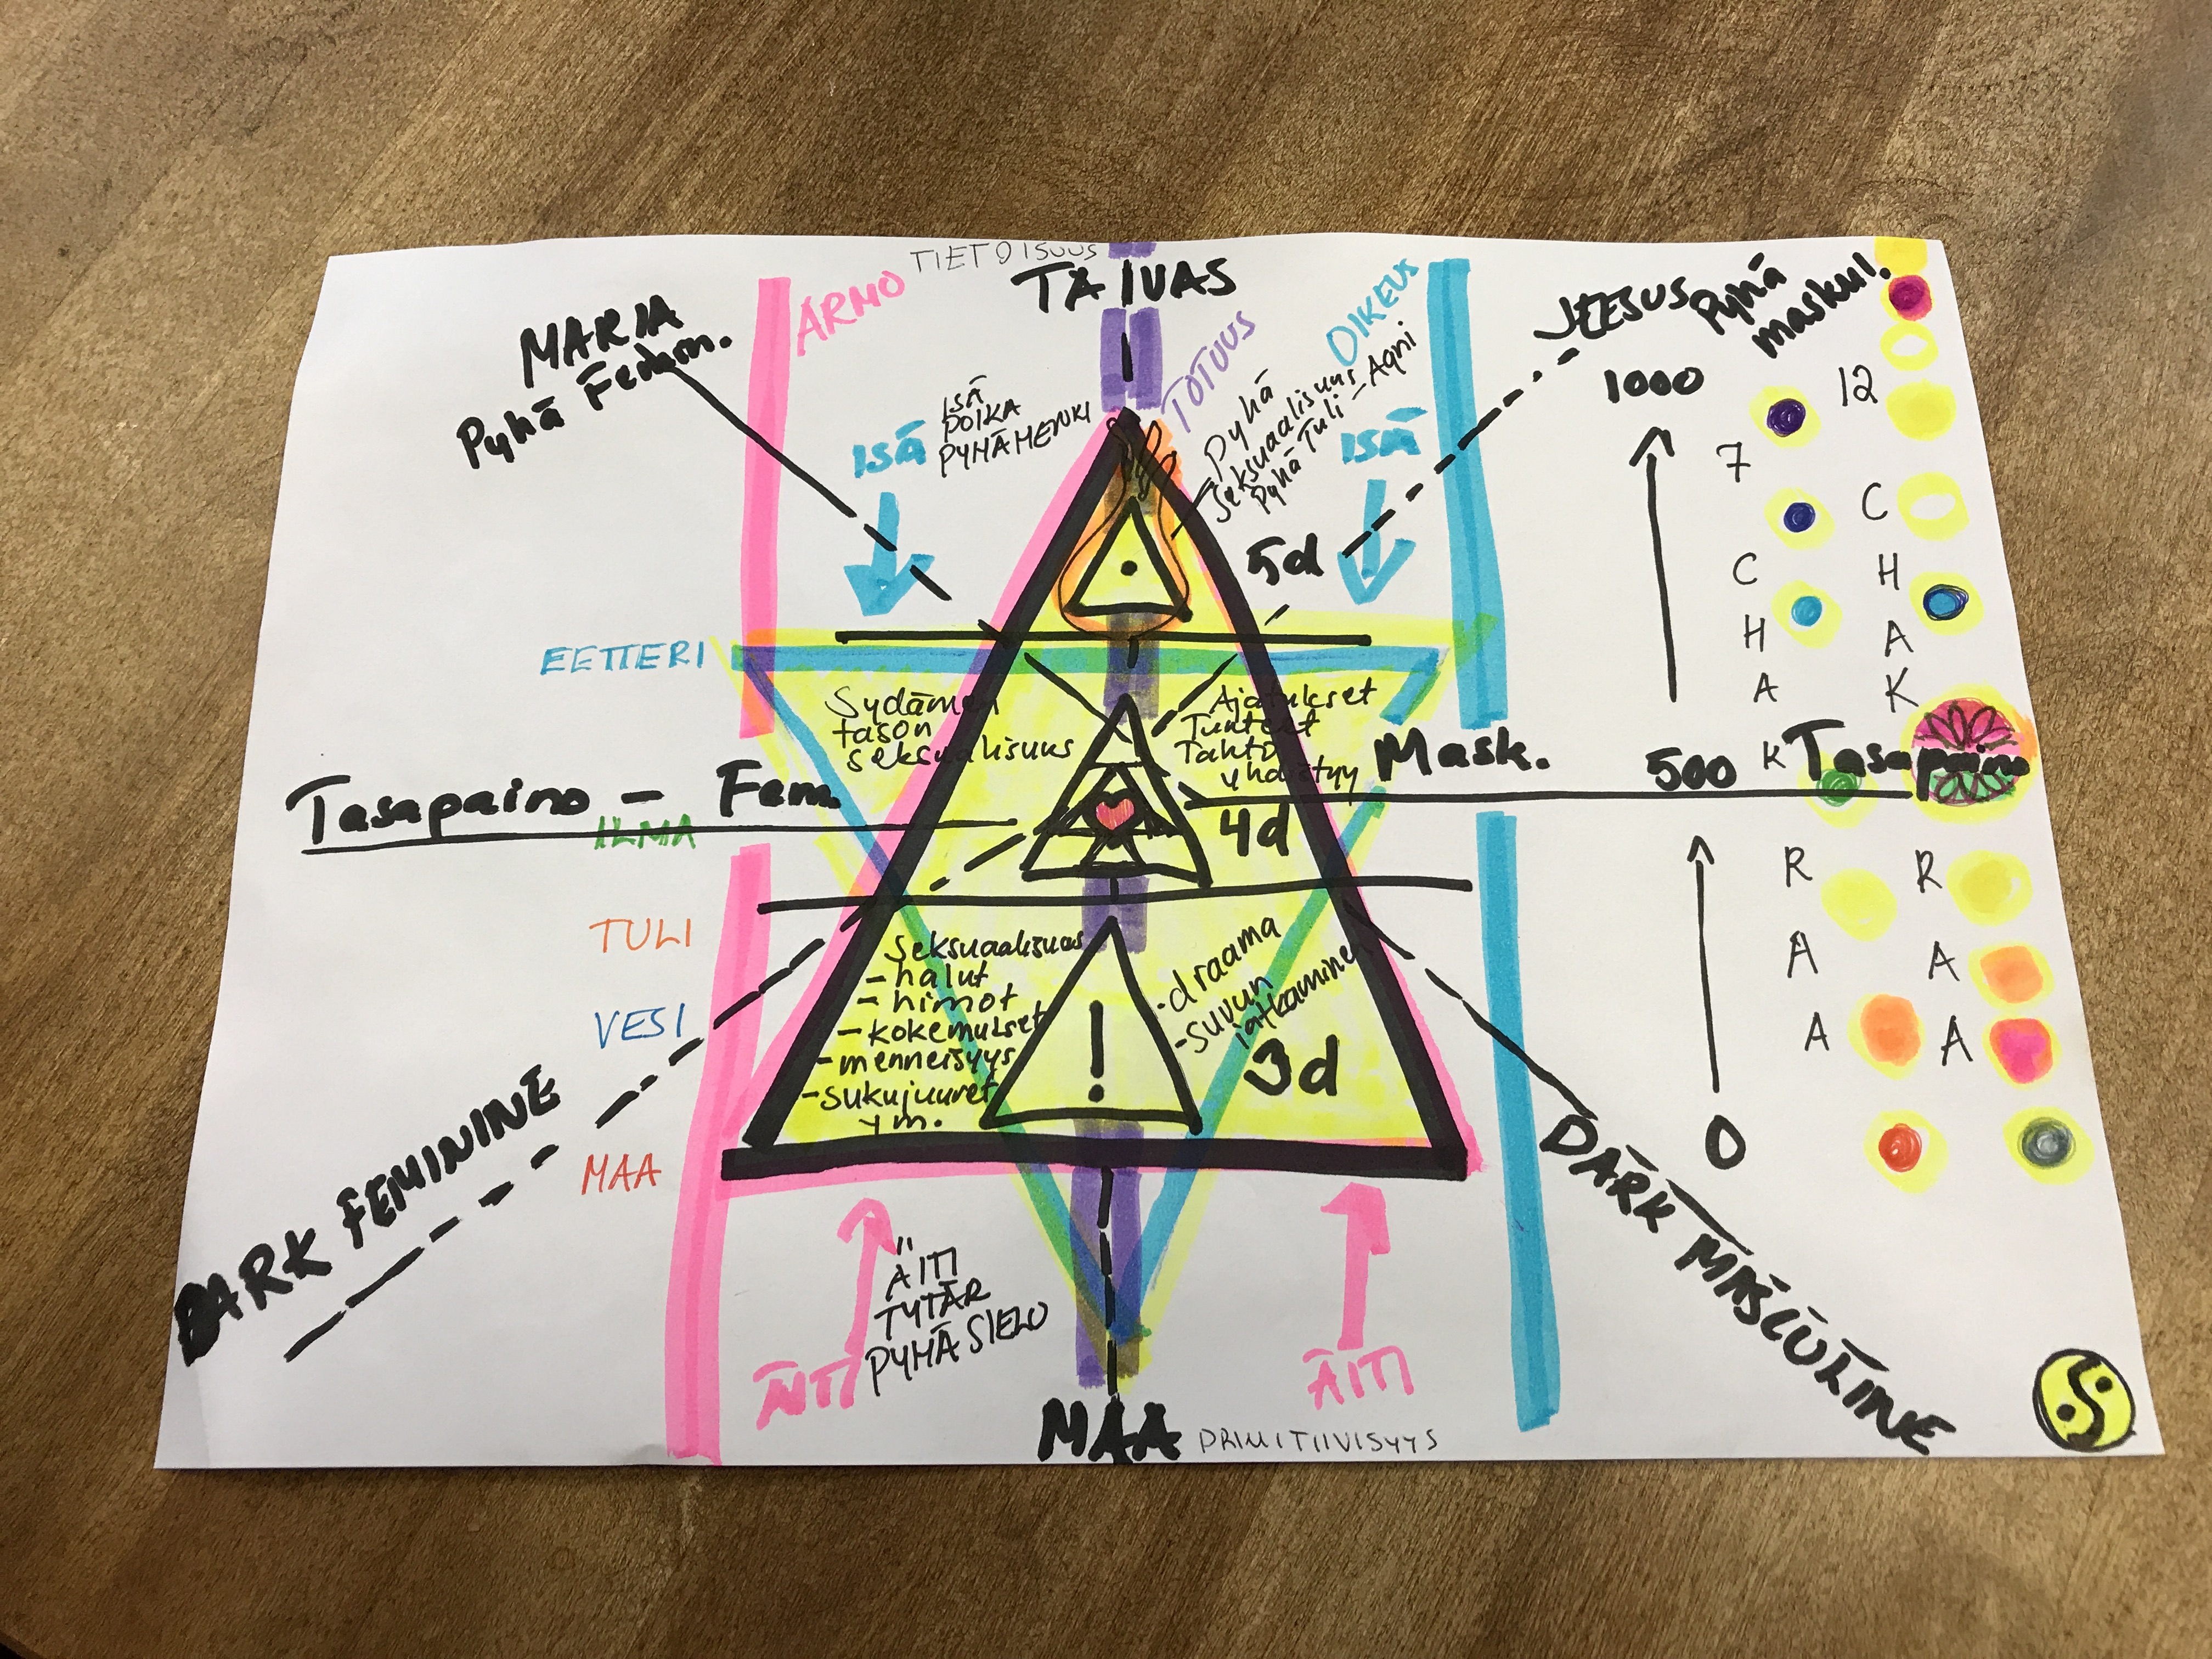 TIETOISUUS
TAIVAS
ARMO
TOTUUS
OIKEUS
MARIA
Pyhä Femin.
JEESUS
Pyhä
maskul.
ISÄ
ISÄ
POIKA
PYHÄ HENKI
Pyhä
Seksuaalisuus
Pyhä Tuli - Agni
ISÄ
5d
1000
12
7
C
H
A
K
R
A
A
C
H
A
K
R
A
A
EETTERI
Sydämen
tason
seksualisuus
Ajatukset
Tunteet
Tahto
yhdistyy
Tasapaino - Fem.
Mask.
500
Tasapaino
ILMA
4d
TULI
VESI
MAA
Seksuaalisuus
- halut
- himot
- kokemukset
- menneisyys
- sukujuuret
ym.
!
- draama
- suvun
jatkaminen
3d
0
DARK FEMININE
DARK MASCULINE
ÄITI
"
ÄITI
TYTÄR
PYHÄ SIELU
ÄITI
MAA
PRIMITIIVISYYS